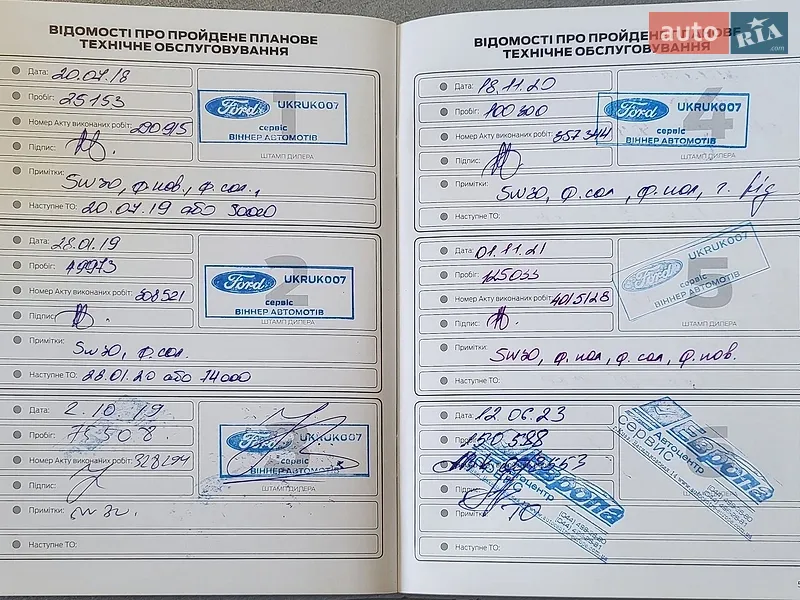 ВІДОМОСТІ ПРО ПРОЙДЕНЕ ПЛАНОВЕ
ТЕХНІЧНЕ ОБСЛУГОВУВАННЯ
Дата: 20.07.18
Пробіг: 25153
Номер Акту виконаних робіт: 290915
Підпис:
1
Ford UKRUK007
сервіс
ВІННЕР АВТОМОТІВ
ШТАМП ДИЛЕРА
Примітки:
5W30, ф. пов., ф. сол.,
Наступне ТО: 20.07.19 або 50000
Дата: 28.01.19
Пробіг: 49973
Номер Акту виконаних робіт: 308521
Підпис:
2
Ford UKRUK007
сервіс
ВІННЕР АВТОМОТІВ
ШТАМП ДИЛЕРА
Примітки:
5W30, ф. сол.
Наступне ТО: 28.01.20 або 74000
Дата: 2.10.19
Пробіг: 75508.
Номер Акту виконаних робіт: 328294
Підпис:
Ford UKRUK007
сервіс
ВІННЕР АВТОМОТІВ
ШТАМП ДИЛЕРА
Примітки:
Наступне ТО:
ВІДОМОСТІ ПРО ПРОЙДЕНЕ ПЛАНОВЕ
ТЕХНІЧНЕ ОБСЛУГОВУВАННЯ
auto RIA .com
Дата: 18.11.20
Пробіг: 100300
Номер Акту виконаних робіт: 357344
Підпис:
4
Ford UKRUK007
сервіс
ВІННЕР АВТОМОТІВ
ШТАМП ДИЛЕРА
Примітки:
5W30, ф. сол, ф. пол,
Наступне ТО:
Дата: 01.11.21
Пробіг: 125033
Номер Акту виконаних робіт: 4015128
Підпис:
5
Ford UKRUK007
сервіс
ВІННЕР АВТОМОТІВ
ШТАМП ДИЛЕРА
Примітки:
5W30, ф. пол, ф. сол, ф. пов.
Наступне ТО:
Дата: 12.06.23
Пробіг: 150.588
Підпис:
Європа
Автоцентр
СЕРВИС
Європа
Автоцентр
Примітки:
ТО
Наступне ТО: